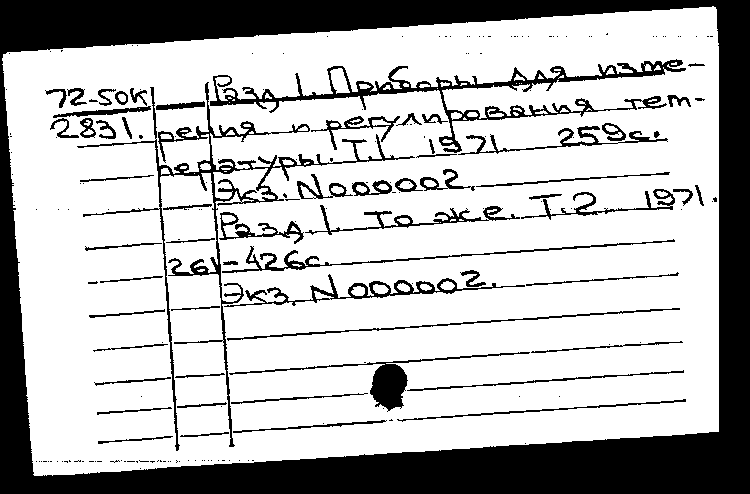 72-50к Разд 1. Приборы для изме-
2831. рения и регулирования тем-
пературы. Т.1. 1971. 259с.
Экз. N000002.
Разд. 1. То же. Т.2. 1971.
261-426с.
Экз. N000002.